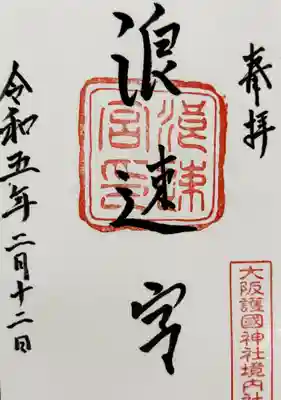 奉拝
浪速宮
浪速宮印
令和五年二月十二日
大阪護國神社境内社